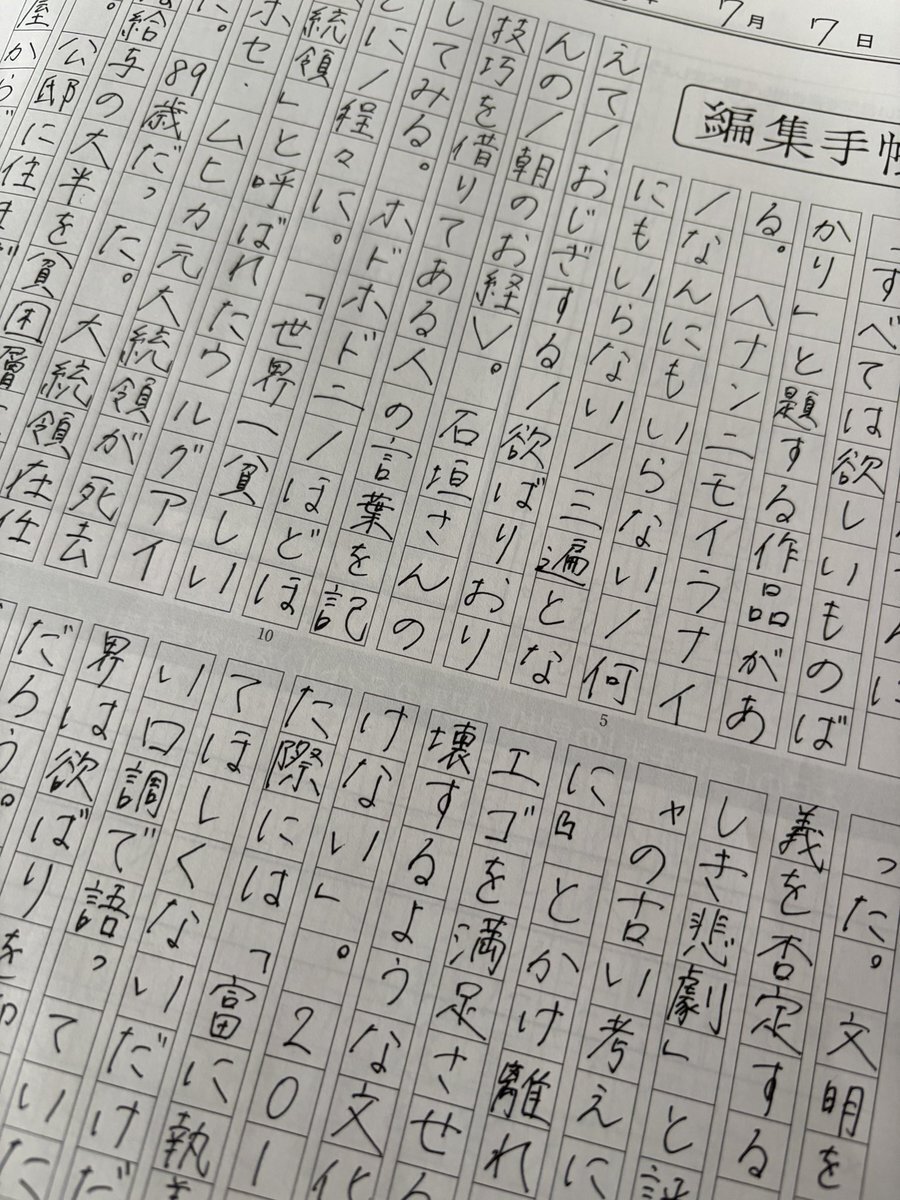 7月 7日
編集手帳
「すべては欲しいものば
かり」と題する作品があ
る。〈ナンニモイラナイ
/なんにもいらない/何
にもいらない/三遍とな
えて/おじぎする/欲ばりおり
んの/朝のお経〉。石垣さんの
技巧を借りてある人の言葉を記
してみる。ホドホドニ/ほどほ
どに/程々に。「世界一貧しい
統領」と呼ばれたウルグアイ
ホセ・ムヒカ元大統領が死去
た。89歳だった。大統領在任
給与の大半を貧困層
公邸に住ま
屋から
った。文明を
義を否定する
しき悲劇」と
ャの古い考えに
に凸とかけ離れ
エゴを満足させる
壊するような文化
けない」。201
た際には「富に執
てほしくないだけだ
い口調で語っていた
界は欲ばりを
だろう。
10
5